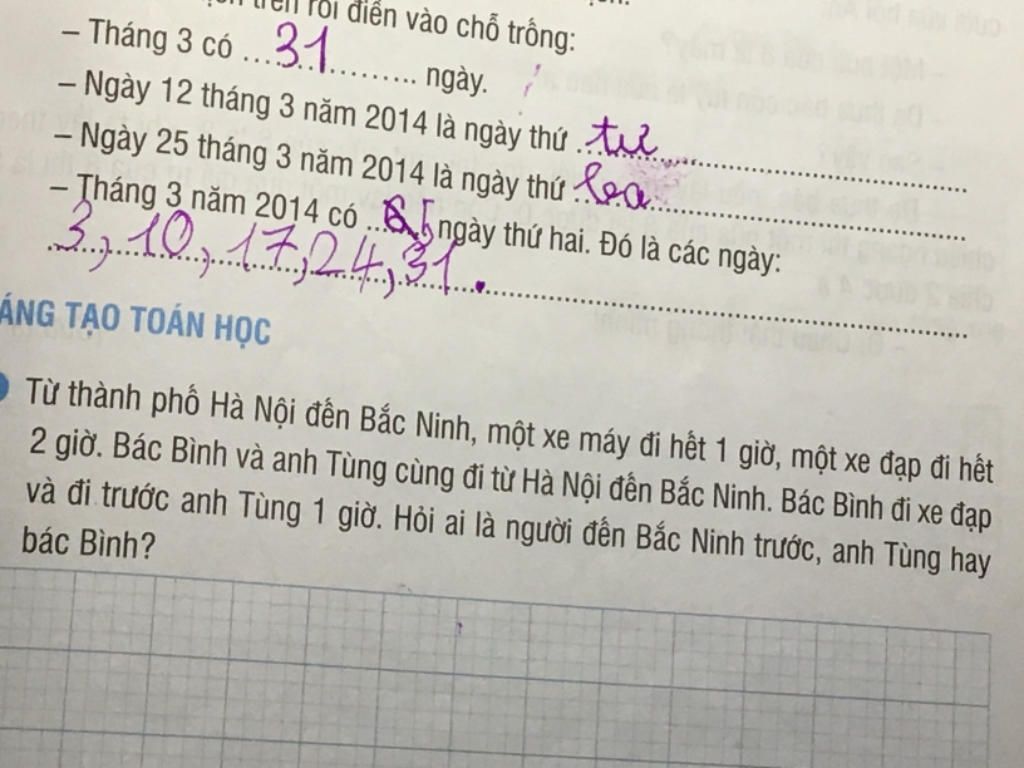 trên rồi điền vào chỗ trống:
– Tháng 3 có ...31......... ngày.
– Ngày 12 tháng 3 năm 2014 là ngày thứ ...tư...
– Ngày 25 tháng 3 năm 2014 là ngày thứ ...ba...
– Tháng 3 năm 2014 có ...5 ngày thứ hai. Đó là các ngày:
3, 10, 17, 24, 31.
ÁNG TẠO TOÁN HỌC
Từ thành phố Hà Nội đến Bắc Ninh, một xe máy đi hết 1 giờ, một xe đạp đi hết
2 giờ. Bác Bình và anh Tùng cùng đi từ Hà Nội đến Bắc Ninh. Bác Bình đi xe đạp
và đi trước anh Tùng 1 giờ. Hỏi ai là người đến Bắc Ninh trước, anh Tùng hay
bác Bình?